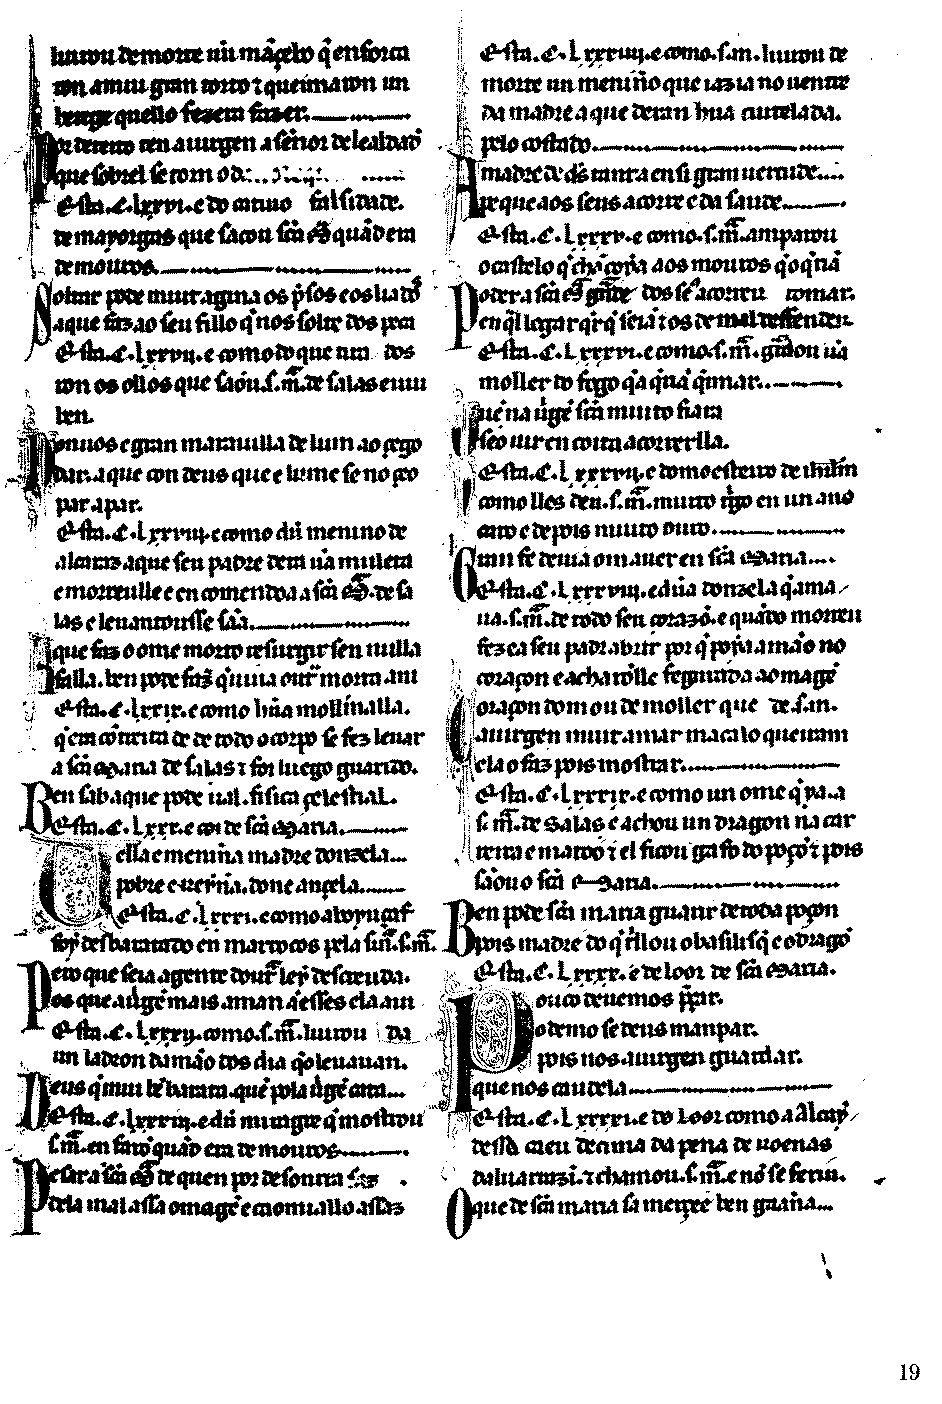 liurou de morte un mãcebo q̇ enforca
ron a mui gran torto ⁊ queimaron un
herege quello fezera fazer.
Por dereito ten a uirgen a sennor de lealdad
que sobrel se torn o d
Esta .C. lxxvi. e do catiuo falsidade.
de mayorgas que sacou sc̃a M̃ quãd era
de mouros.
Soltar pode muit agina os p̃sos e os liados
aque faz ao seu fillo q̇ nos solte dos peca
Esta .C. lxxvii. e como do que tira dos
ron os ollos que sãou .s.m̃. de salas en un
ben.
Non uos e gran marauilla de lum ao çego
dar. a que con deus que e lume se no çeo
par a par.
Esta .C. lxxviii. e como dũ menino de
alcaraz aque seu padre dera ũa muleta
e morreulle e en comendoa a sc̃a M̃. de sa
las e leuantousse sãa.
A que faz o ome morto resurgir sen nulla
falla. ben pode faz̃ q̇ uiua outr̃ morta ani
Esta .C. lxxix. e como hũa moll
q̇ era cõtreita de de todo o corpo se fez leuar
a sc̃a Maria de salas ⁊ foi luego guarida.
Ben sab a que pode ual. fisica çelestial.
Esta .C. lxxx. e loor de sc̃a Maria.
Uella e menĩna madre donzela
pobre e reyñna. done ançela
Esta .C. lxxxi. e como aboyuçaf
foy desbaratado en marrocos pela sina .s.m̃.
Pero que seia a gente doutr̃ ley descreuda.
os que a uirgẽ mais aman a esses ela aiu
Esta .C. lxxxii. como .s.m̃. liurou da
un ladron da mão dos dia q̇ o leuauan.
Deus q̇ mui bẽ barata. que pola uirgẽ cata
Esta .C. lxxxiii. e dũ miragre q̇ mostrou
s.m̃. en faarõ quãd era de mouros
Pesar a sc̃a M̃ de quen por desonrra faz
dela mal a ssa omagẽ e caomiallo assaz
Esta .C. lxxxiiii. e como .s.m. liurou de
morte un menino que iazia no uentre
da madre a que deran hũa cuitelada.
pelo costado.
A madre de ds̃ tant a en si gran uertude
per que aos seus acorre e da saude.
Esta .C. lxxxv. e como .s.m̃. amparou
o castelo q̇ chã aos mouros q̇ o q̇riã
Poder a sc̃a M̃ grãde dos seus acorreu tomar.
en q̇l logar q̇r q̇ seiã ⁊ os de mal deffender
Esta .C. lxxxvi. e como .s.m̃. guardou ũa
moller do fogo q̇ a q̇riã q̇imar.
Quẽ na uirgẽ sc̃a muito fiara
seo uir en coita acorrerlla.
Esta .C. lxxxvii. e do moesteiro de ihrlm̃
como lles deu .s.m̃. muito trigo en un ano
caro e depois muito ouro.
Gran fe deuia om auer en sc̃a Maria
Esta .C. lxxxviii. e dũa donzela q̇ ama
ua .s.m̃. de todo seu corazõ. e quãdo morreu
feza seu padr abrir por q̇ poia a mão no
coraçon e acharõlle fegurada a omagẽ
Coraçon d om ou de moller que de s.m.
a uirgen muit amar macalo queiram
ela o faz pois mostrar.
Esta .C. lxxxix. e como un ome q̇ ya a
s.m̃. de Salas e achou un dragon na car
reira e matoo ⁊ el ficou gafo do poçõ ⁊ pois
sãou o sc̃a Maria.
Ben pode sc̃a maria guarir de toda poçon
pois madre do q̇ trillou o basilisq̇ e o dragõ
Esta .C. lxxxx. e de loor de sc̃a Maria.
Pouco deuemos p̃çar.
o demo se deus manpar.
pois nos a uirgen guardar.
que nos caudela
Esta .C. lxxxxi. e do loor como a Alcay
dessa caeu de cima da pena de roenas
daluarrazĩ. ⁊ chamou .s.m̃. e nõ se feriu.
O que de sc̃a maria sa merçee ben gaañna
19